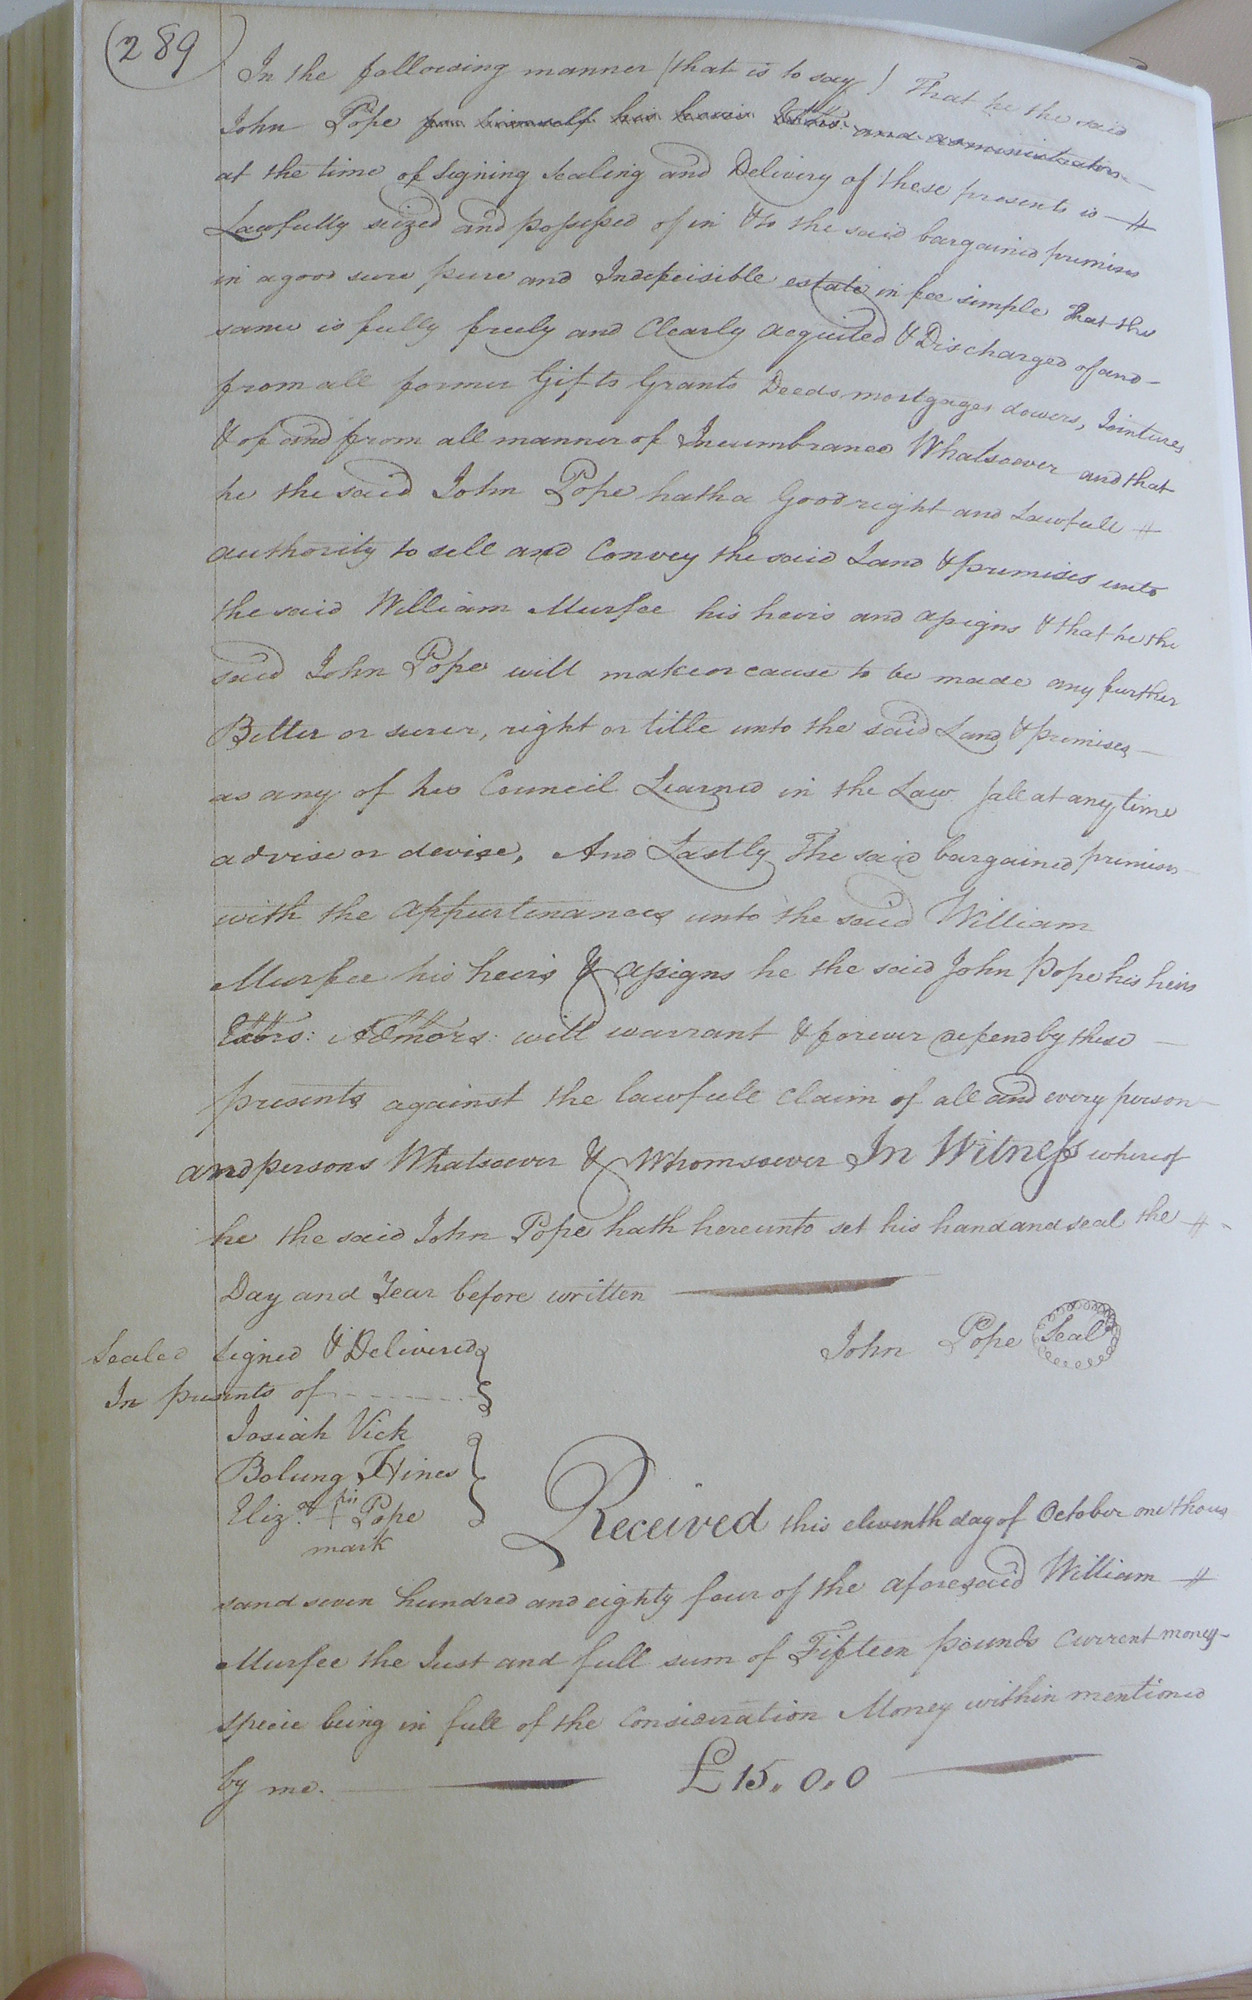 (289)
In the following manner (that is to say) That he the said
John Pope for himself his heirs Exors: and administrators
at the time of signing sealing and Delivery of these presents is
Lawfully seized and possessed of in & to the said bargained premises
in a good sure pure and Indefeisible estate in fee simple That the
same is fully freely and Clearly acquited & Discharged of and
from all former Gifts Grants Deeds mortgages dowers, Jointures
& of and from all manner of Incumbrance Whatsoever and that
he the said John Pope hath a Good right and Lawfull
authority to sell and Convey the said Land & premises unto
the said William Murfee his heirs and assigns & that he the
said John Pope will make or cause to be made any further
Better or surer, right or title unto the said Land & premises
as any of his Council Learned in the Law sall at any time
advise or devise, And Lastly The said bargained premises
with the appurtenances unto the said William
Murfee his heirs & assigns he the said John Pope his heirs
Exors: Admors: will warrant & forever defend by these
presents against the lawfull Claim of all and every person
and persons Whatsoever & Whomsoever In Witness whereof
he the said John Pope hath hereunto set his hand and seal the
Day and Year before written
John Pope Seal
Sealed signed & Delivered
In presents of
Josiah Vick
Bolung Hines
Eliza. + Pope
mark
Received this eleventh day of October one thou
sand seven hundred and eighty four of the aforesaid William
Murfee the Just and full sum of Fifteen pounds Current money
specie being in full of the Consideration Money within mentioned
by me. £15.0.0